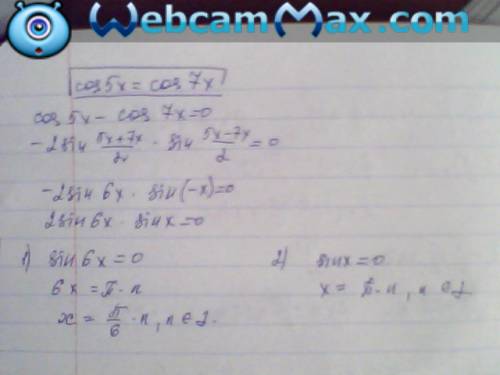 WebcamMax.com
cos 5x = cos 7x
cos 5x - cos 7x = 0
-2 sin (5x+7x)/2 · sin (5x-7x)/2 = 0
-2 sin 6x · sin(-x) = 0
2 sin 6x · sin x = 0
1) sin 6x = 0
6x = π · n
x = π/6 · n, n ∈ Z.
2) sin x = 0
x = π · n, n ∈ Z